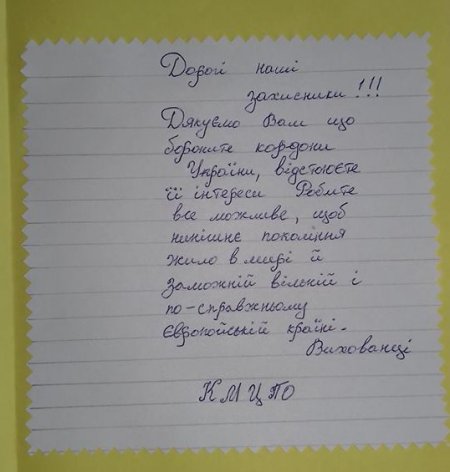 Дорогі наші
захисники!!!
Дякуємо Вам що
бороните кордони
України, відстоюєте
її інтереси Робите
все можливе, щоб
нинішнє покоління
жило в мирі й
заможній вільній і
по-справжньому
Європейській країні.
Вихованці
КМЦПО